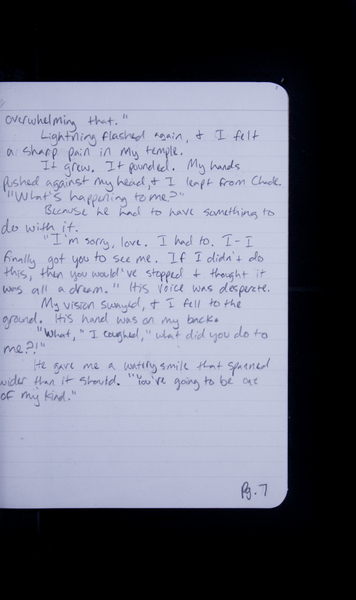 overwhelming that."
Lightning flashed again, & I felt
a sharp pain in my temple.
It grew. It pounded. My hands
pushed against my head, & I leapt from Chuck.
"What's happening to me?"
Because he had to have something to
do with it.
"I'm sorry, love. I had to. I-I
finally got you to see me. If I didn't do
this, then you would've stopped & thought it
was all a dream." His voice was desperate.
My vision swayed, & I fell to the
ground. His hand was on my back.
"What," I coughed, "what did you do to
me?!"
He gave me a watery smile that spanned
wider than it should. "You're going to be one
of my kind."
Pg. 7